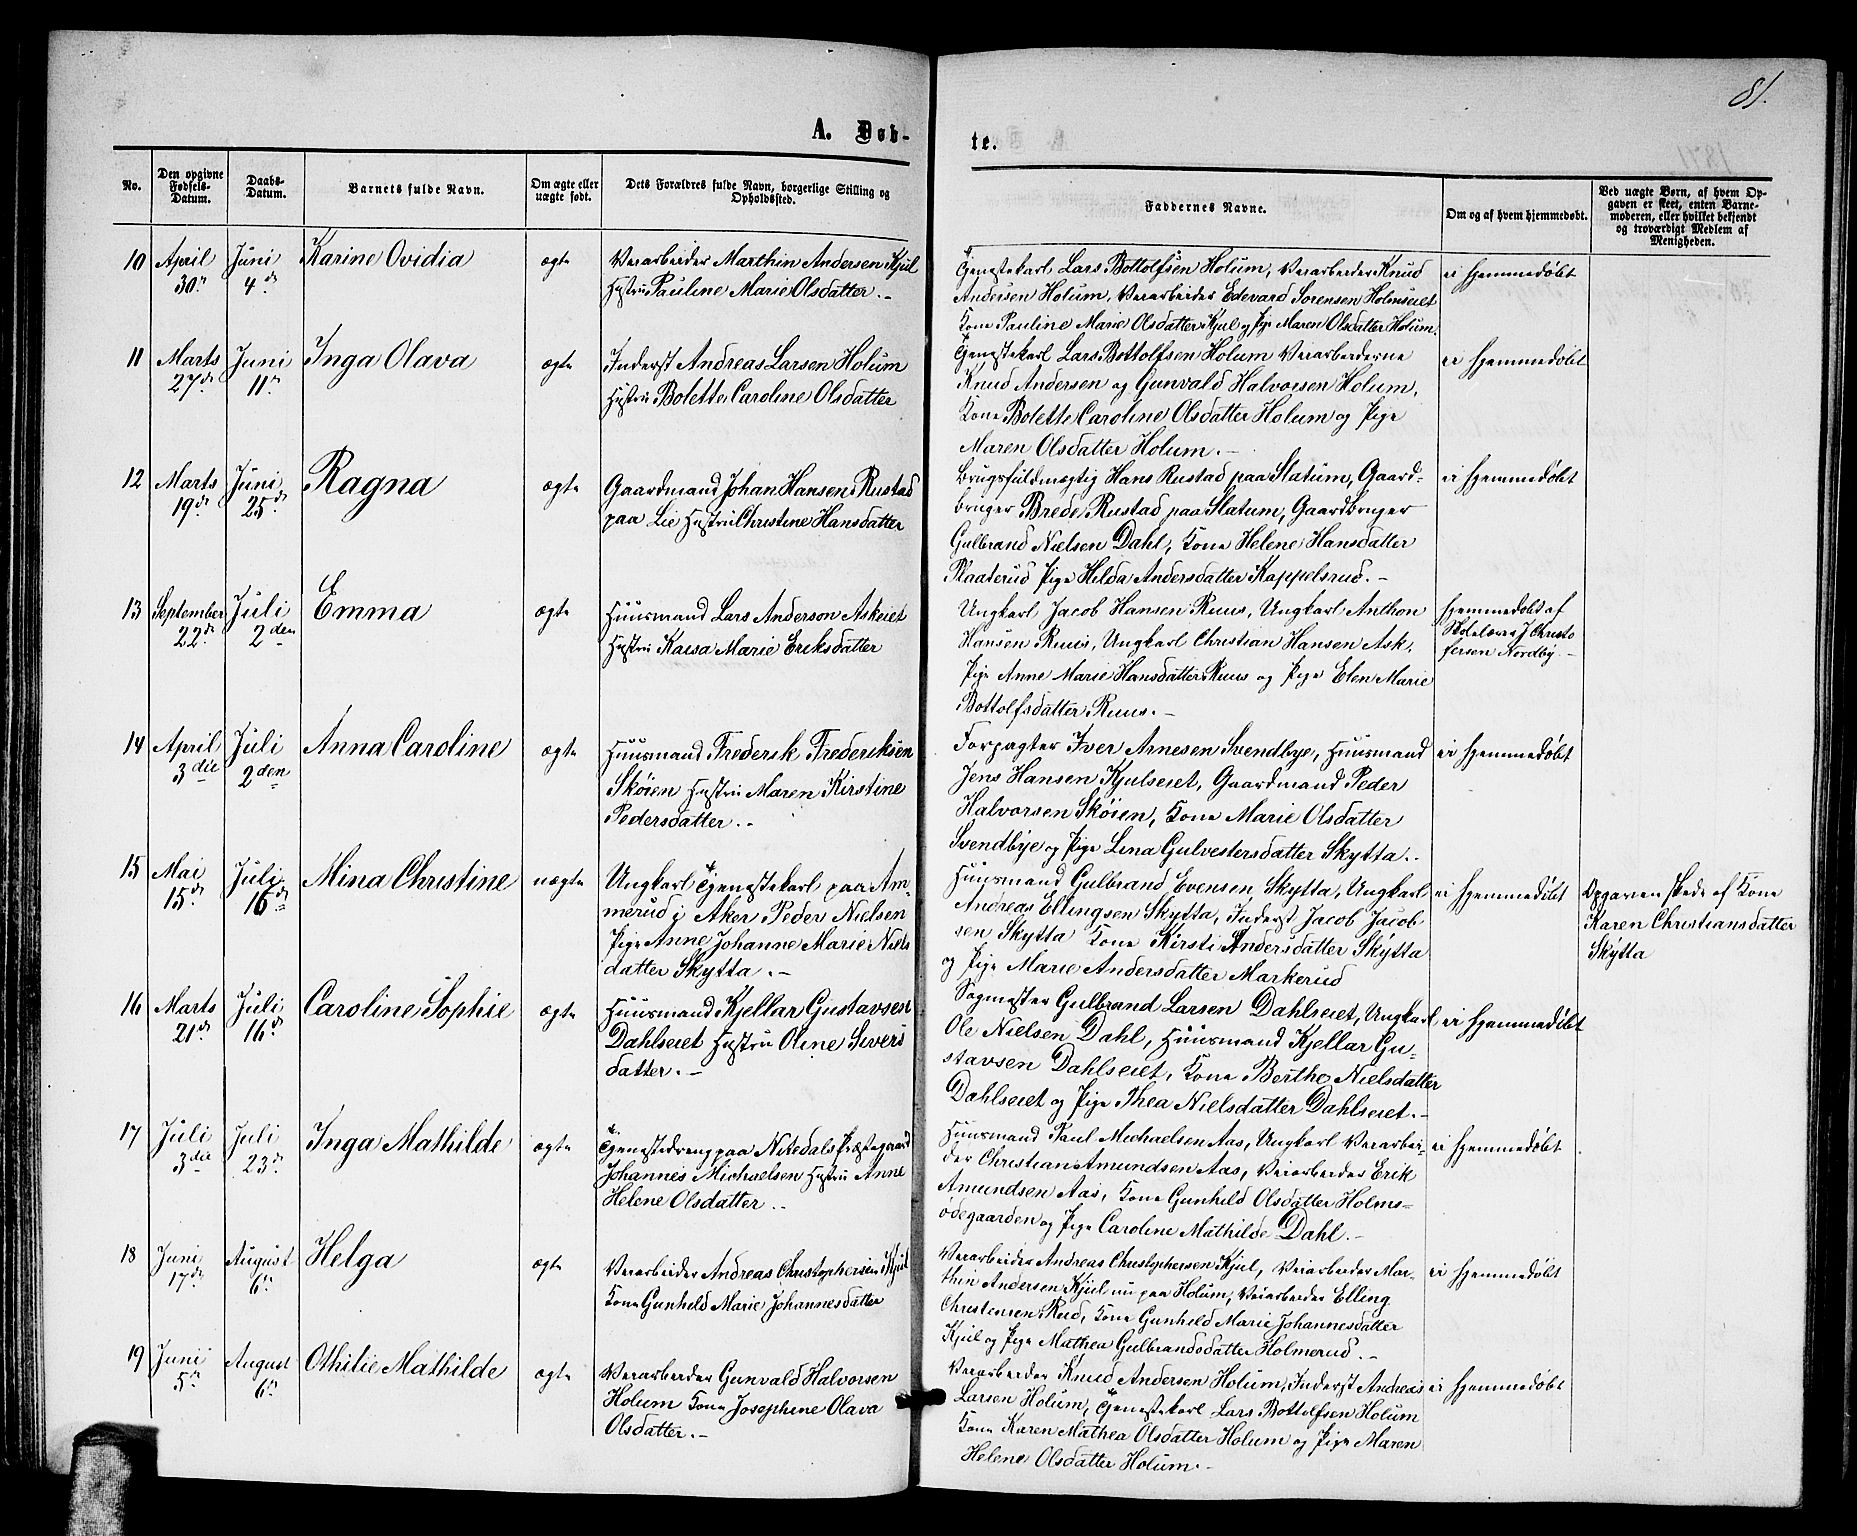 81.
A. Døb-
te.
No.
Den opgivne Fødsels-Datum.
Daabs-Datum.
Barnets fulde Navn.
Om ægte eller uægte født.
Dets Forældres fulde Navn, borgerlige Stilling og Opholdssted.
Faddernes Navne.
Om og af hvem hjemmedøbt.
Ved uægte Børn, af hvem Op-
gaven er skeet, enten Barne-
moderen, eller hvilket bekjendt
og troværdigt Medlem af
Menigheden.
10 April 30te Juni 4de Karine Ovidia ægte
Veiarbeider Marthin Andersen Kjul
Hustru Pauline Marie Olsdatter.-
Tjenestekarl Lars Bottolfsen Holum, Veiarbeider Knud
Andersen Holum, Veiarbeider Edevard Sorensen Holmseiet
Kone Pauline Marie Olsdatter Kjul og Pige Maren Olsdatter Holum.
ei hjemmedøbt
11 Marts 27de Juni 11te Inga Olava ægte
Inderst Andreas Larsen Holum
Hustru Bolette Caroline Olsdatter
Tjenestekarl Lars Bottolfsen Holum Veiarbeiderne
Knud Andersen og Gunvald Halvorsen Holum,
Kone Bolette Caroline Olsdatter Holum og Pige
Maren Olsdatter Holum.-
ei hjemmedøbt
12 Marts 19de Juni 25de Ragna ægte
Gaardmand Johan Hansen Rustad
paa Lie Hustru Christine Hansdatter
Brugsfuldmægtig Hans Rustad paa Slatum, Gaard-
bruger Brede Rustad paa Slatum, Gaardbruger
Gulbrand Nielsen Dahl, Kone Helene Hansdatter
Raaterud Pige Hilda Andersdatter Kappelsrud.-
ei hjemmedøbt
13 September 22de Juli 2den Emma ægte
Huusmand Lars Anderson Askeiet
Hustru Kaisa Marie Eriksdatter
Ungkarl Jacob Hansen Ruus, Ungkarl Anthon
Hansen Ruus, Ungkarl Christian Hansen Ask,
Pige Anne Marie Hansdatter Ruus og Pige Elen Marie
Bottolfsdatter Ruus.-
hjemmedøbt af
Skolelærer J Christo
fersen Nordby.-
14 April 3die Juli 2den Anna Caroline ægte
Huusmand Frederik Frederiksen
Skøien Hustru Maren Kirstine
Pedersdatter.-
Forpagter Iver Arnesen Svendbye, Huusmand
Jens Hansen Kjulseiet, Gaardmand Peder
Halvorsen Skøien, Kone Marie Olsdatter
Svendbye og Pige Lina Gulvestersdatter Skytta.-
ei hjemmedøbt
15 Mai 15de Juli 16de Mina Christine uægte
Ungkarl Tjenestekarl paa Am-
merud i Aker Peder Nielsen
Pige Anne Johanne Marie Niels
datter Skytta.-
Huusmand Gulbrand Evensen Skytta, Ungkarl
Andreas Ellingsen Skytta, Inderst Jacob Jacob
sen Skytta Kone Kirsti Andersdatter Skytta
og Pige Marie Andersdatter Markerud
ei hjemmedøbt
Opgaven skede af Kone
Karen Christiansdatter
Skytta
16 Marts 21de Juli 16de Caroline Sophie ægte
Huusmand Kjellar Gustavsen
Dahlseiet Hustru Oline Sivers
datter.-
Sagmester Gulbrand Larsen Dahlseiet, Ungkarl
Ole Nielsen Dahl, Huusmand Kjellar Gu-
stavsen Dahlseiet, Kone Berthe Nielsdatter
Dahlseiet og Pige Thea Nielsdatter Dahlseiet.-
ei hjemmedøbt
17 Juli 3die Juli 23de Inga Mathilde ægte
Tjenestedreng paa Nitedals Præstegaard
Johannes Michaelsen Hustru Anne
Helene Olsdatter.-
Huusmand Paul Michaelsen Aas, Ungkarl Veiarbei-
der Christian Amundsen Aas, Veiarbeider Erik
Amundsen Aas, Kone Gunhild Olsdatter Holms-
ødegaarden og Pige Caroline Mathilde Dahl.-
ei hjemmedøbt
18 Juni 17de August 6te Helga ægte
Veiarbeider Andreas Christophersen Kjul
Kone Gunhild Marie Johannesdatter
Veiarbeider Andreas Christophersen Kjul, Veiarbeider Mar-
thin Andersen Kjul nu paa Holum, Veiarbeider Elling
Christensen Rud, Kone Gunhild Marie Johannesdatter
Kjul og Pige Mathea Gulbrandsdatter Holmerud.-
ei hjemmedøbt
19 Juni 5te August 6te Othilie Mathilde ægte
Veiarbeider Gunvald Halvorsen
Holum Kone Josephine Olava
Olsdatter.-
Veiarbeider Knud Andersen Holum, Inderst Andreas
Larsen Holum, Tjenestekarl Lars Bottolfsen Holum
Kone Karen Mathea Olsdatter Holum og Pige Maren
Helene Olsdatter Holum.-
ei hjemmedøbt